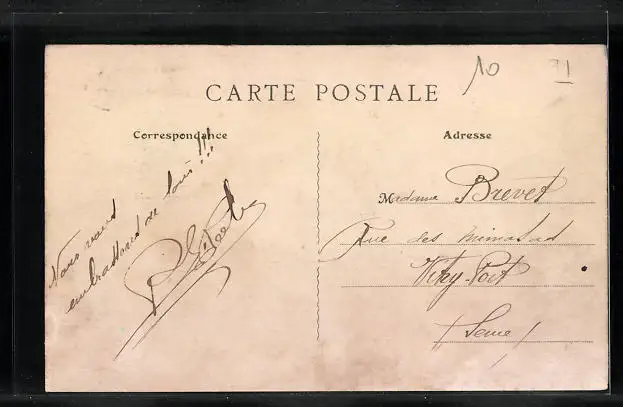 10
CARTE POSTALE
Correspondance
Adresse
Nous vous
embrassons de loin!!!
Madame Brevet
Rue des
Vitry-Port
(Seine)